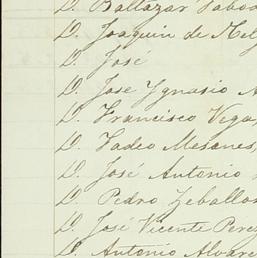 D. Baltazar Taboa
D. Joaquin de Mel
D. José
D. Jose Ygnasio A
D. Francisco Vega,
D. Tadeo Mesanes,
D. José Antonio
D. Pedro Zeballo
D. José Vicente Pere
D. Antonio Alvare